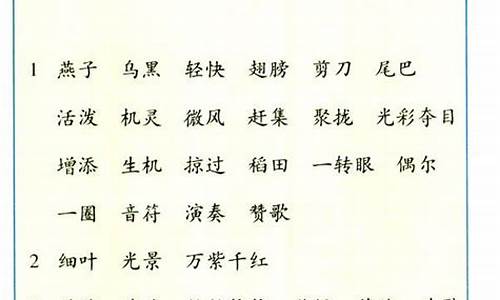 1 燕子 乌黑 轻快 翅膀 剪刀 尾巴
活泼 机灵 微风 赶集 聚拢 光彩夺目
增添 生机 掠过 稻田 一转眼 偶尔
一圈 音符 演奏 赞歌
2 细叶 光景 万紫千红